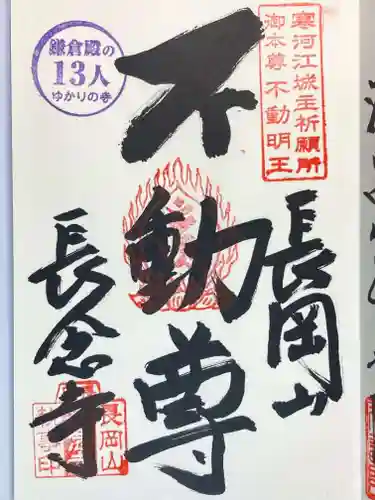 寒河江城主祈願所
御本尊 不動明王
鎌倉殿の
13人
ゆかりの寺
長岡山
不動尊
長念寺
長岡山